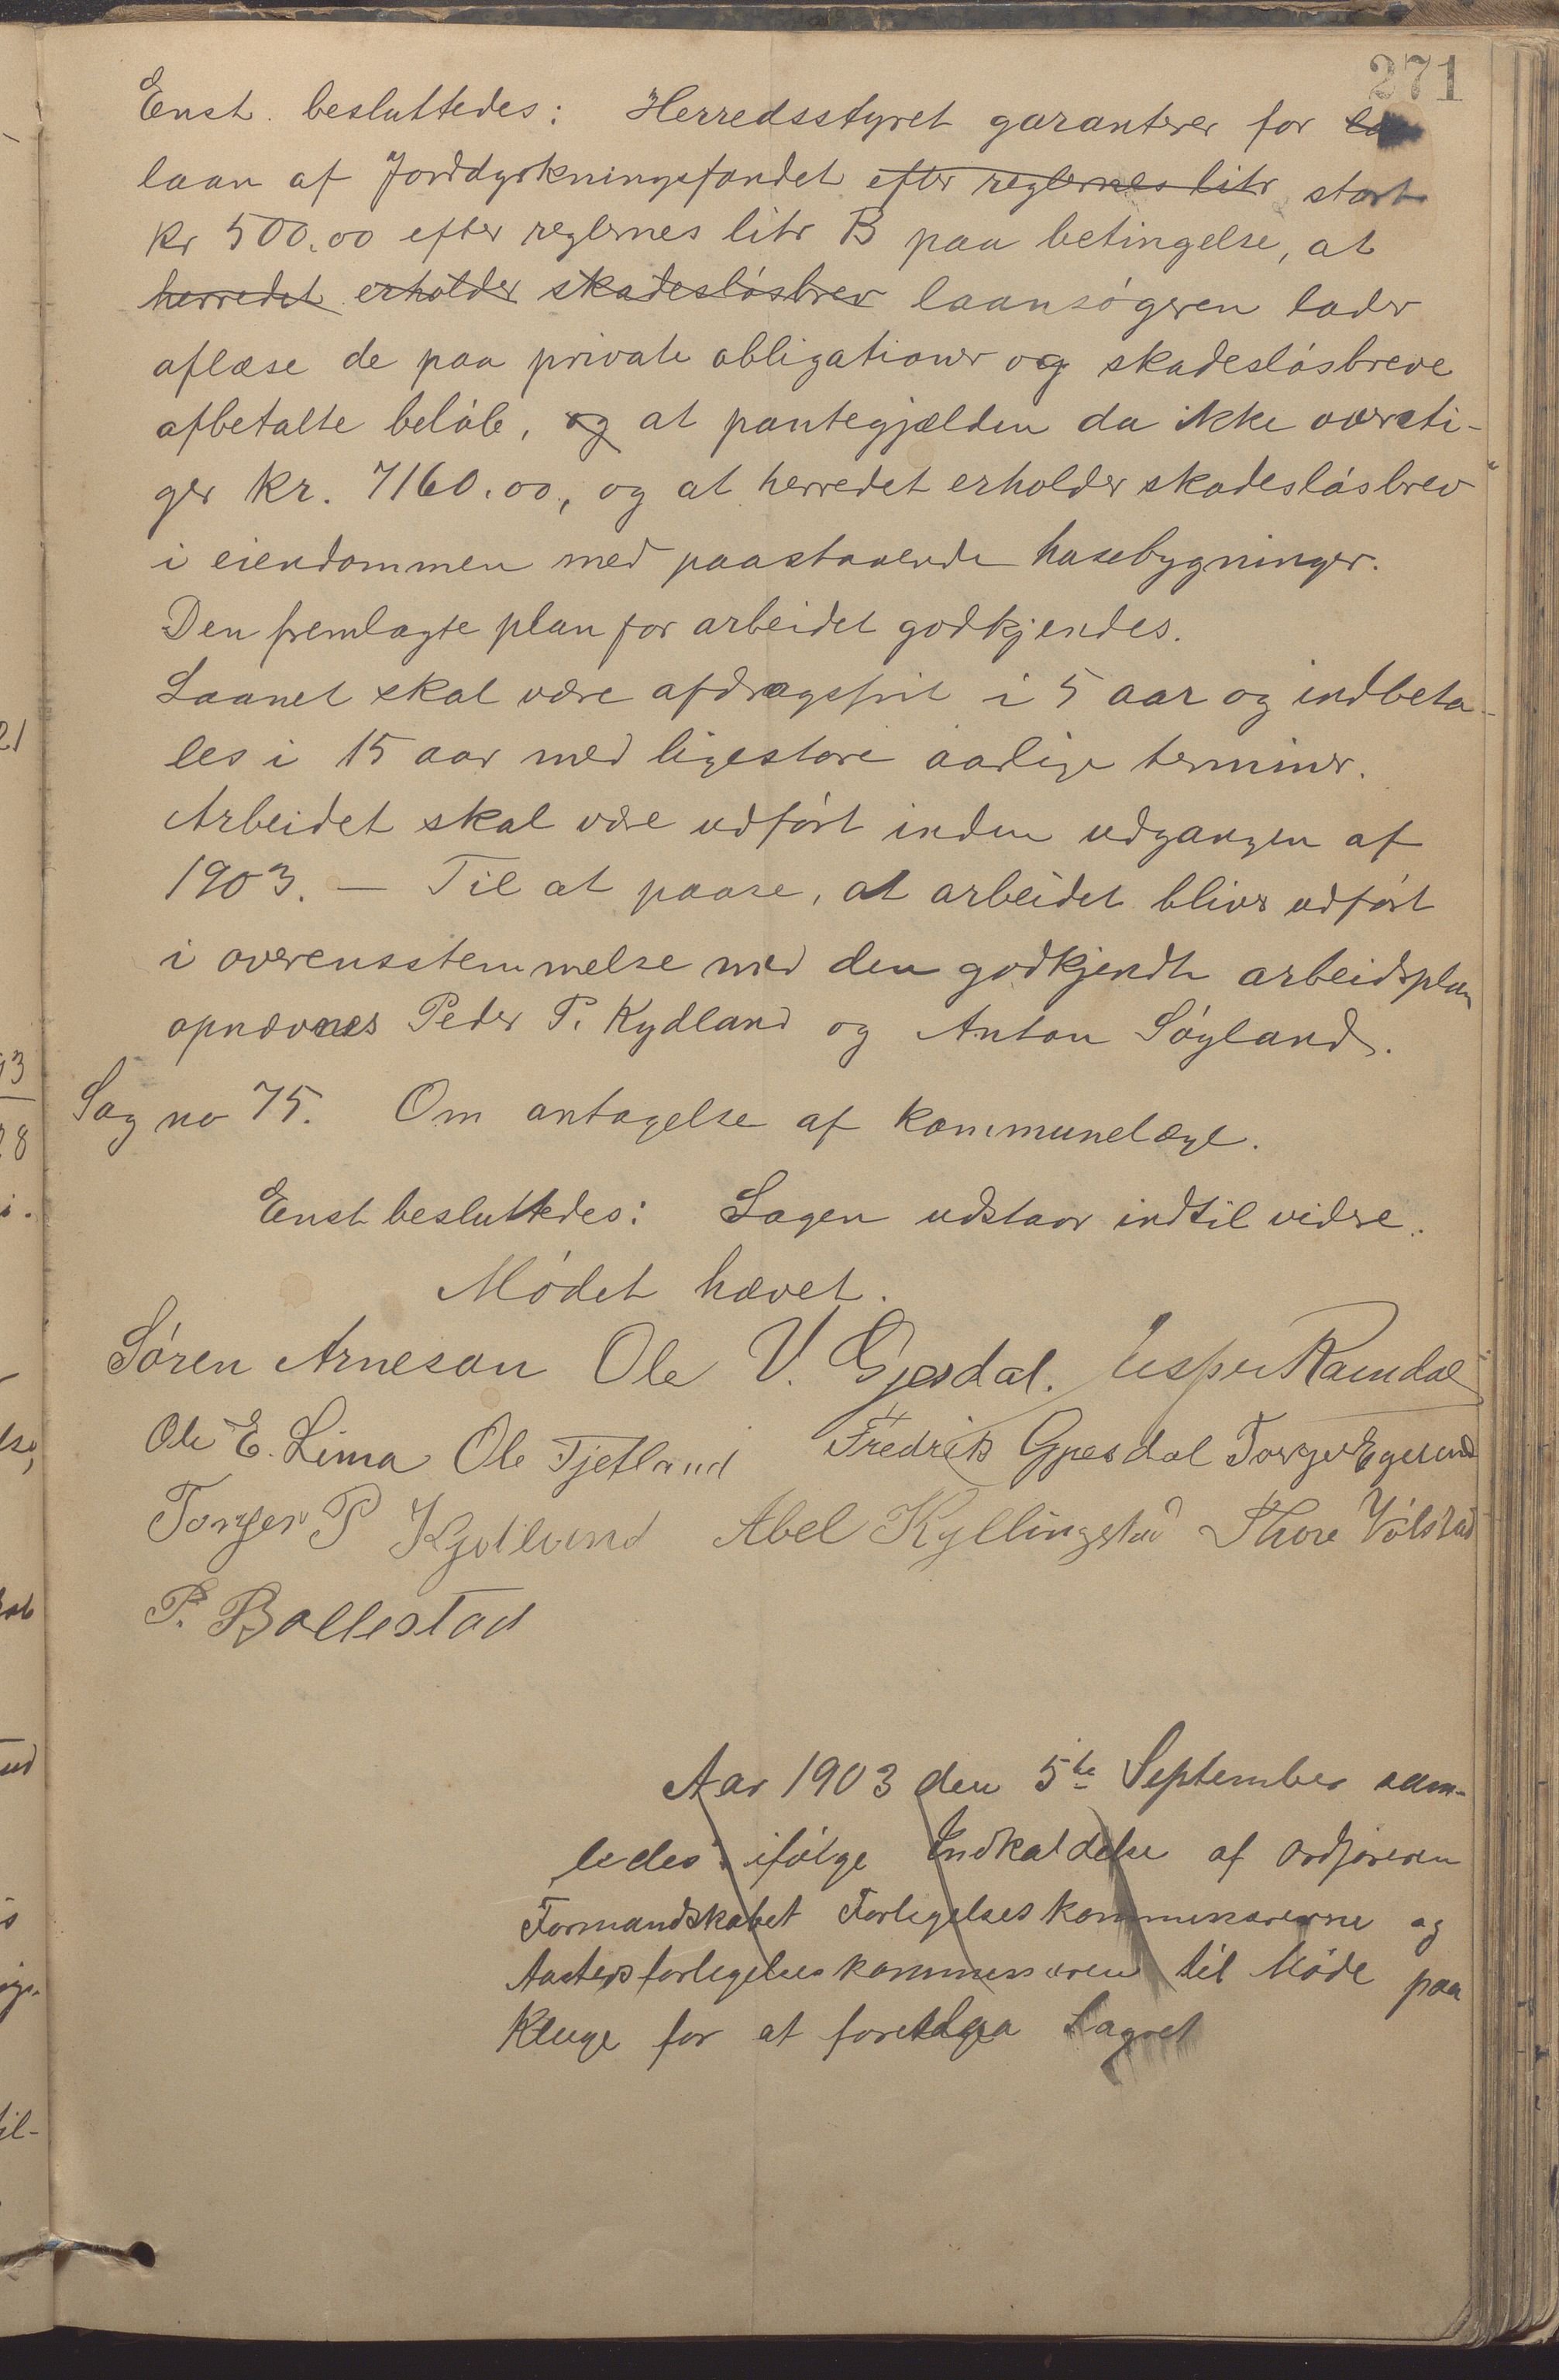 271
Enst. besluttedes: Herredsstyret garanterer for
laan af Jorddyrkningsfondet efter reglernes litr stort
kr 500.00 efter reglernes litr B paa betingelse, at
herredet erholder skadesløsbrev laansøgeren lader
aflæse de paa private obligationer og skadesløsbreve
afbetalte beløb, og at pantegjælden da ikke oversti-
ger kr. 7160.00, og at herredet erholder skadesløsbrev
i eiendommen med paastaaende husebygninger.
Den fremlagte plan for arbeidet godkjendes.
Laanet skal være afdragsfrit i 5 aar og indbeta-
les i 15 aar med ligestore aarlige terminer.
Arbeidet skal være udført inden udgangen af
1903. — Til at paase, at arbeidet bliver udført
i overensstemmelse med den godkjendte arbeidsplan
opnævnes Peder P. Kydland og Anton Søyland.
Sag no 75. Om antagelse af kommunelæge.
Enst besluttedes: Sagen udstaar indtil videre.
Mødet hævet.
Søren Arnesen Ole V. Gjesdal. Jesper Ramdal
Ole E. Lima Ole Tjetland Fredrik Gjesdal Torger Egeland
Torger P Kydland Abel Kyllingstad Thore Vølstad
P. Bollestad
Aar 1903 den 5te September sam-
ledes ifølge Indkaldelse af Ordføreren
Formandskabet Forligelseskommisærerne og
til Møde paa
Kluge for at foretaga Lagret